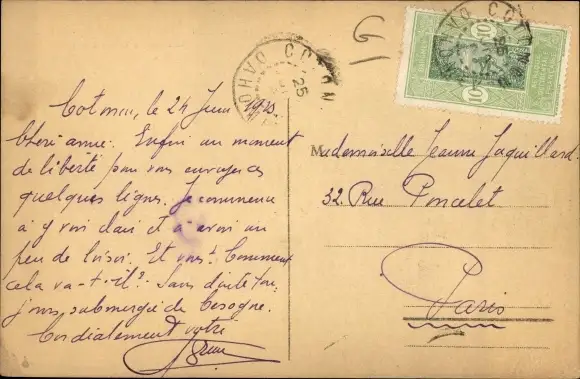 COTONOU
DAHO
25
G
10
10
Cotonou, le 24 Juin
Chère amie. Enfin un moment
de liberté pour vous envoyer ces
quelques lignes. Je commence
à y voir clair et à avoir un
peu de loisir. Et vous? Comment
cela va-t-il? Sans doute tou-
jours submergée de besogne.
Cordialement votre
Mademoiselle Jeanne Jaquillard
32. Rue Poncelet
Paris